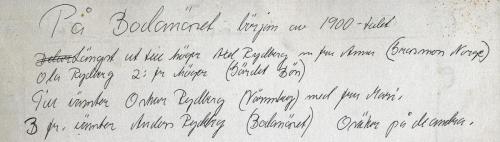 På Bodanäset början av 1900-talet
längst ut till höger Axel Rydberg m fru Anna (Grasmon Norge)
Ola Rydberg 2: fr höger (Bärdet Bön)
Till vänster Oskar Rydberg (Vännberg) med fru Mari.
3 fr. vänster Anders Rydberg (Bodanäset) Osäker på de andra.